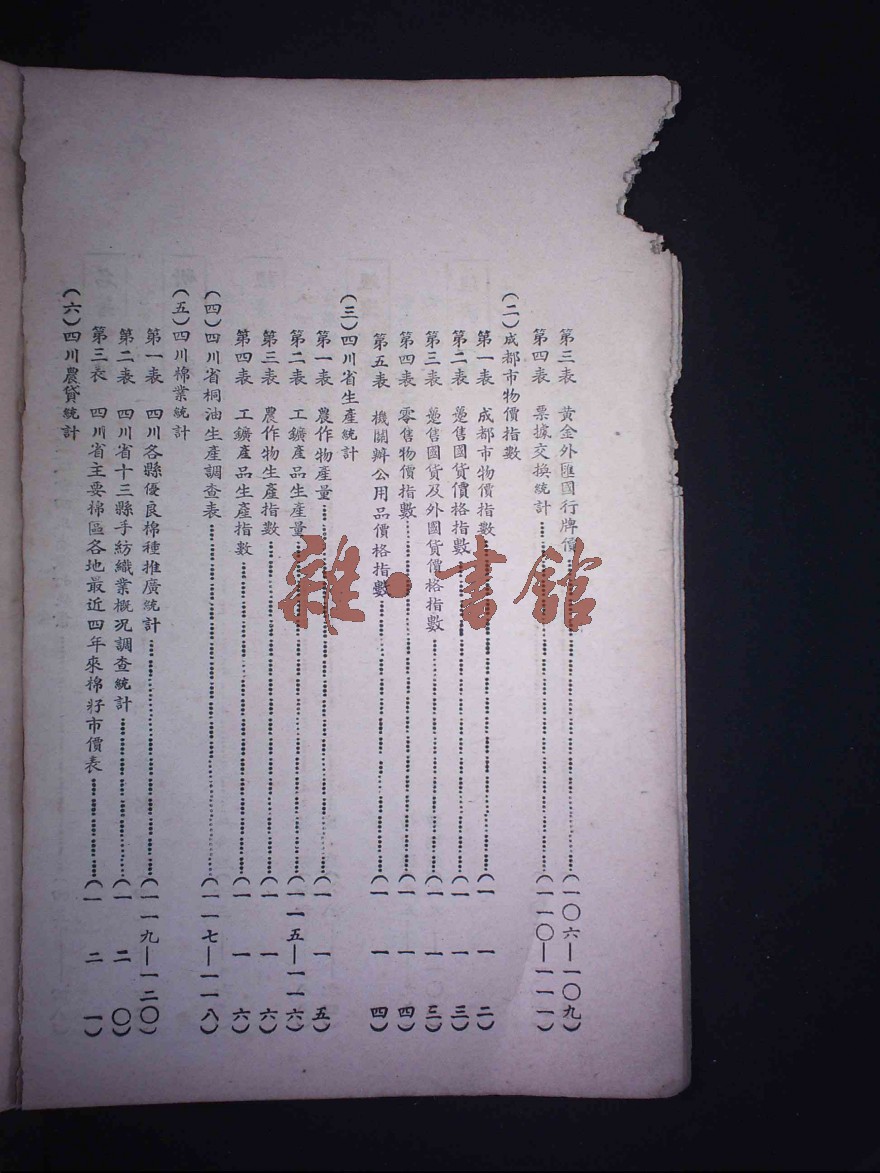 第三表 黃金外匯國行牌價……(一〇六—一〇九)
第四表 票據交換統計……(一一〇—一一一)
(二)成都市物價指數
第一表 成都市物價指數……(一一二)
第二表 躉售國貨價格指數……(一一三)
第三表 躉售國貨及外國貨價格指數……(一一三)
第四表 零售物價指數……(一一四)
第五表 機關辦公用品價格指數……(一一四)
(三)四川省生產統計
第一表 農作物產量……(一一五)
第二表 工鑛產品生產量……(一一五—一一六)
第三表 農作物生產指數……(一一六)
第四表 工鑛產品生產指數……(一一六)
(四)四川省桐油生產調查表……(一一七—一一八)
(五)四川棉業統計
第一表 四川各縣優良棉種推廣統計……(一一九—一二〇)
第二表 四川省十三縣手紡織業概況調查統計……(一二〇)
第三表 四川省主要棉區各地最近四年來棉籽市價表……(一二一)
(六)四川農貸統計
雜·書館